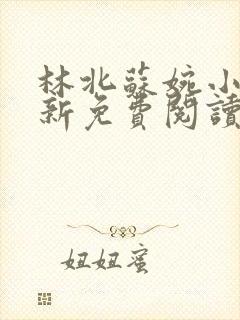 林北蘇婉小
新免費閱讀
妞妞蜜